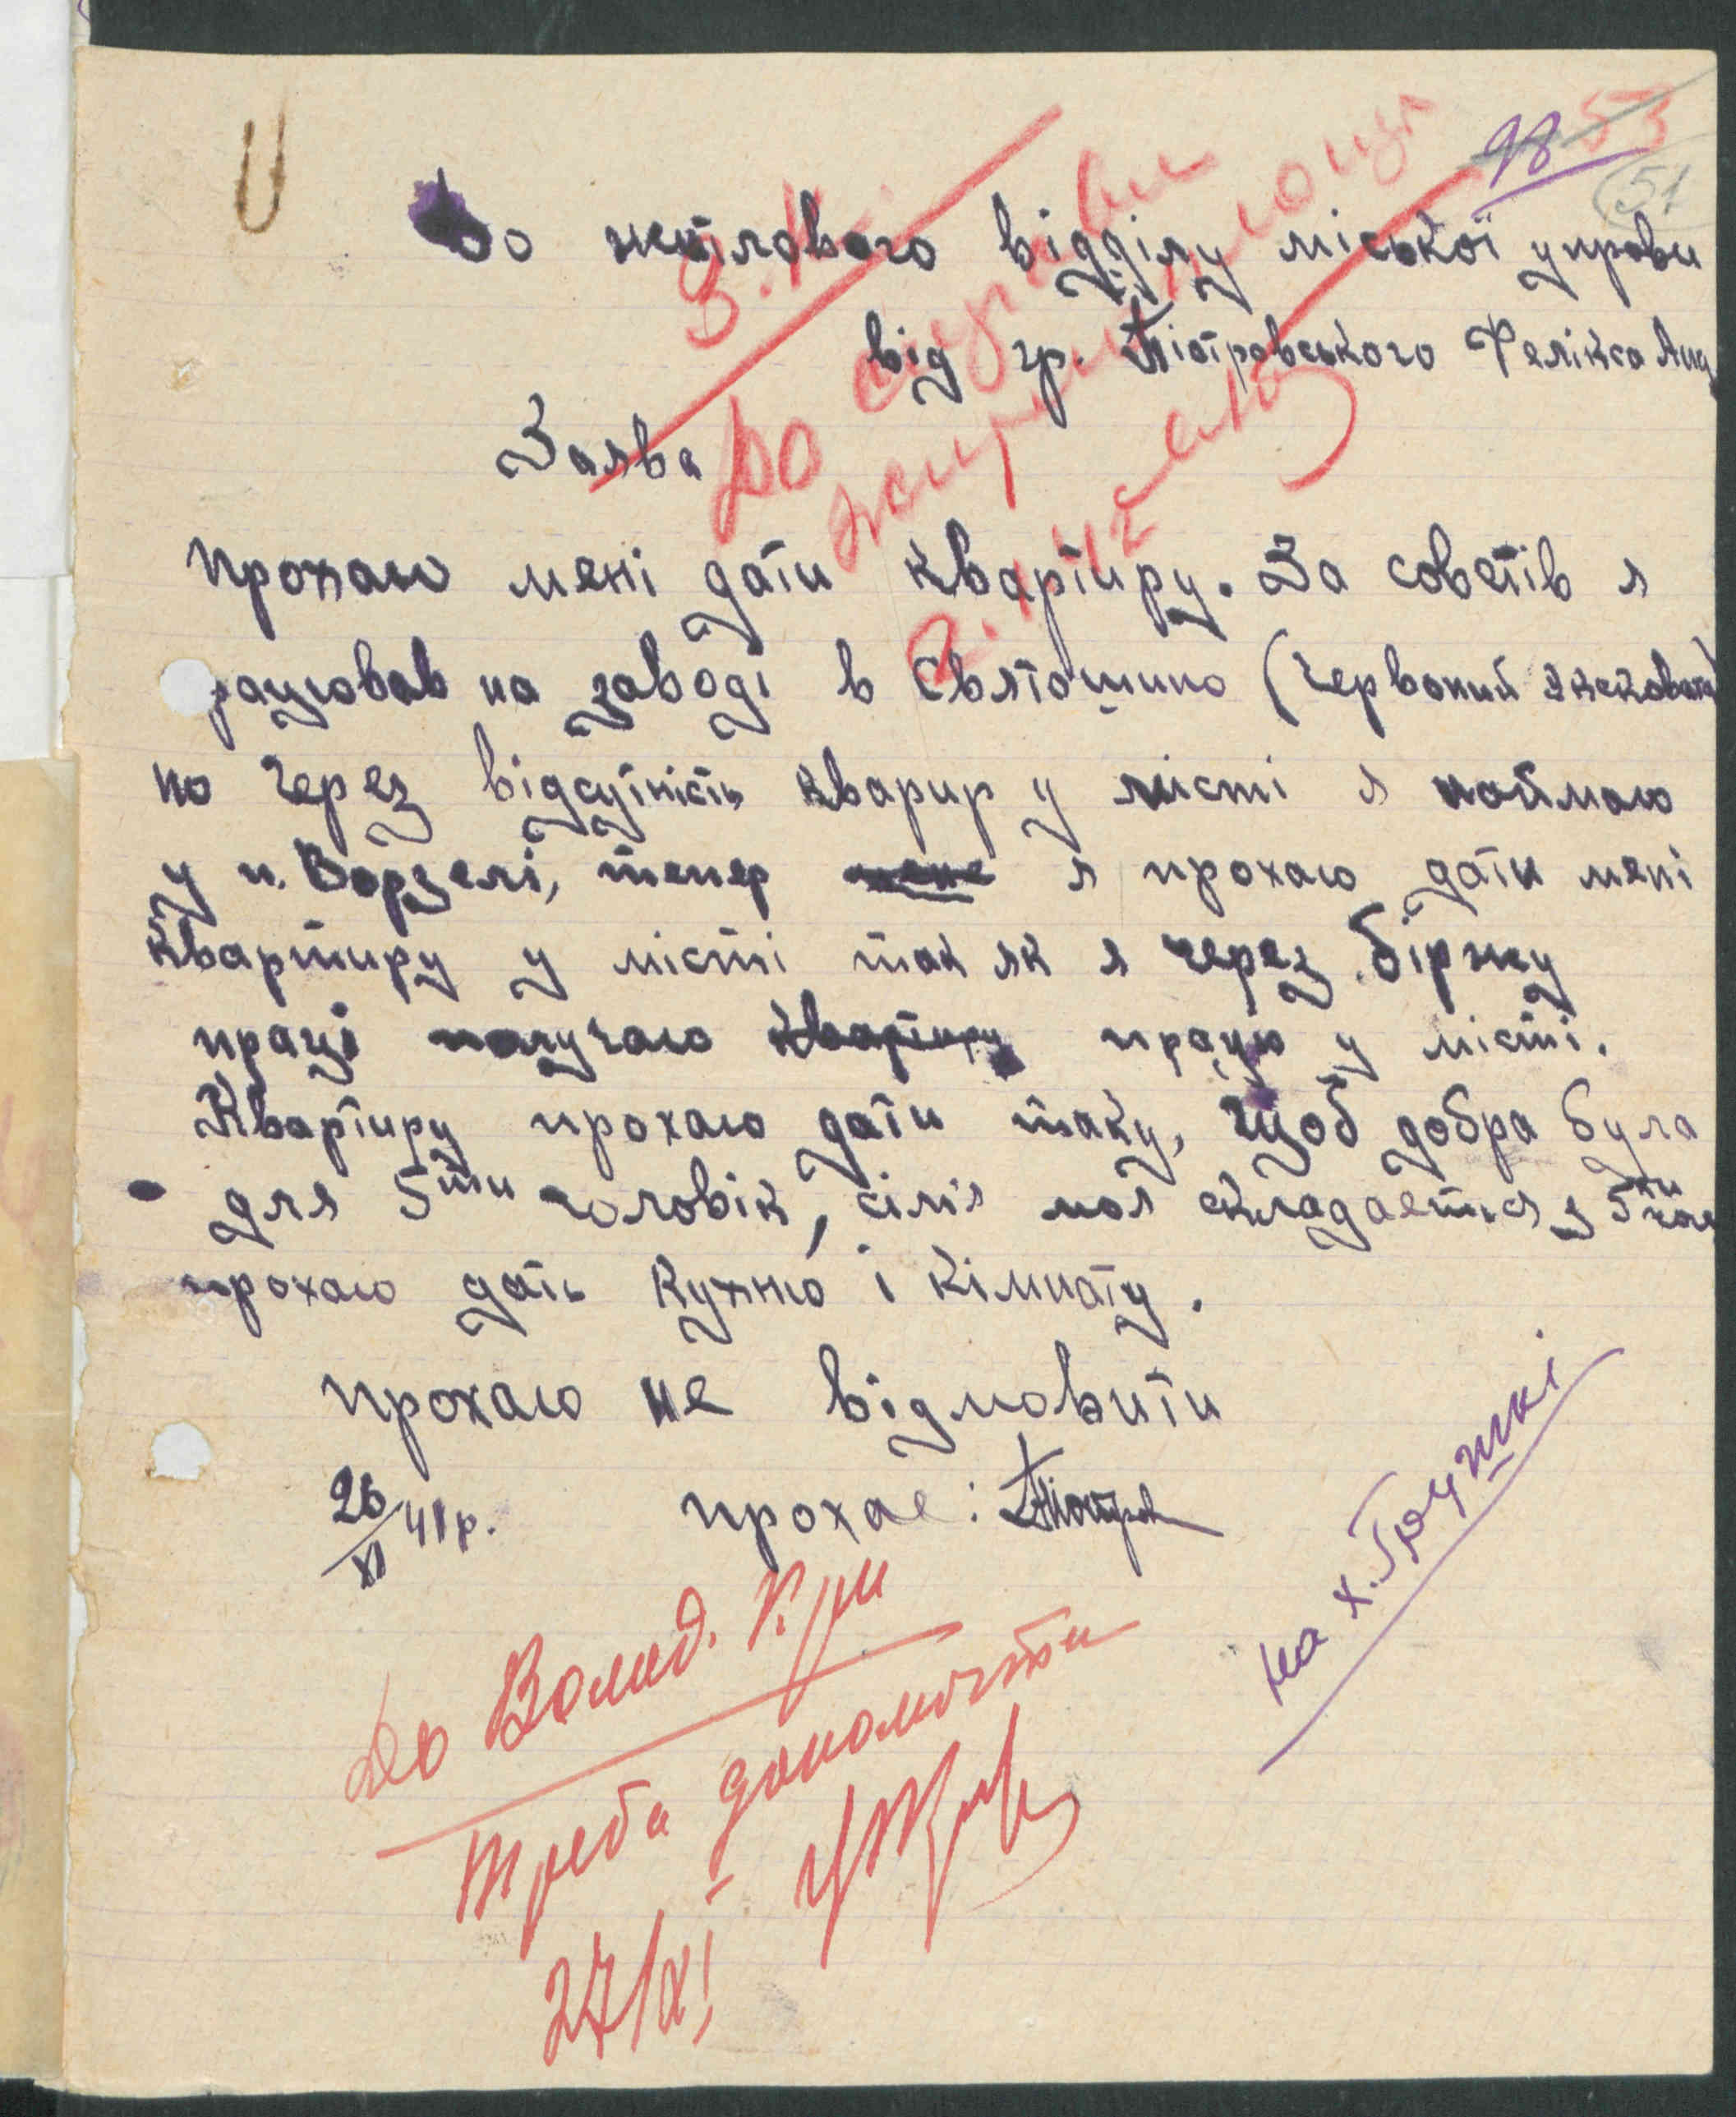 98 53
51
До житлового відділу міської управи
від гр. Піотровського Фелікса Анд
Заява
До
Прохаю мені дати квартиру. За совєтів я
рацював на заводі в Святошино (Червоний екскаватор)
но через відсутність кварир у місті я наймаю
у п. Ворзелі, тепер я прохаю дати мені
квартиру у місті так як я через біржу
праці получаю квартиру працю у місті.
Квартиру прохаю дати таку, щоб добра була
для 5ти чоловік, сімія моя складається з 5ти чол
прохаю дать кухню і кімнату.
прохаю не відмовити
26/XI 41р. прохае:
на х. Грушкі
До Волод. К/ри
треба допомогти
27/XI